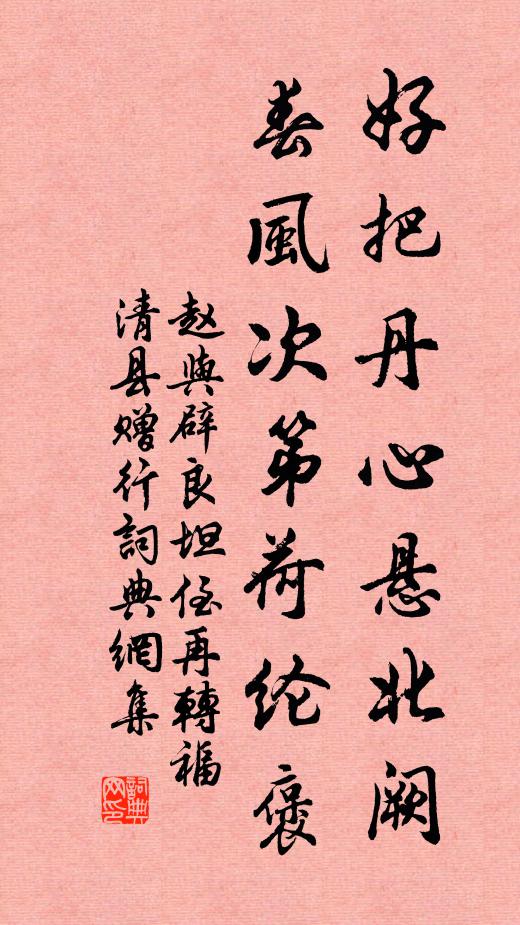 好把丹心悬北阙
春風次第荷纶褒
赵與辟良坦侄再轉福
清县赠行詞典網集
詞典
网印